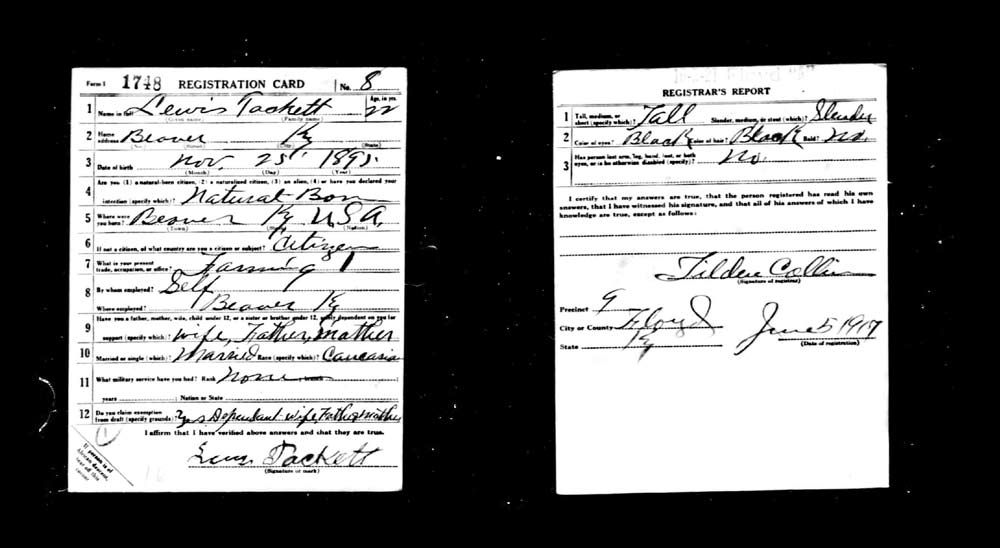 Form 1 1748 REGISTRATION CARD No. 8
1 Name in full Lewis Tackett Age, in yrs. 22
(Given name) (Family name)
2 Home address Beaver Ky
(No.) (Street) (City) (State)
3 Date of birth Nov. 25 1895.
(Month) (Day) (Year)
Are you (1) a natural-born citizen, (2) a naturalized citizen, (3) an alien, (4) or have you declared your
4 intention (specify which)? Natural Born
5 Where were you born? Beaver Ky U.S.A.
(Town) (State) (Nation)
6 If not a citizen, of what country are you a citizen or subject? Citizen
7 What is your present trade, occupation, or office? Farming 1
8 By whom employed? Self
Where employed? Beaver Ky
Have you a father, mother, wife, child under 12, or a sister or brother under 12, solely dependent on you for
9 support (specify which)? wife, Father, mother
10 Married or single (which)? Married Race (specify which)? Caucasian
11 What military service have you had? Rank None branch
years Nation or State
12 Do you claim exemption from draft (specify grounds)? Yes Dependant wife, Father mother
I affirm that I have verified above answers and that they are true.
Tackett
(Signature or mark)
If person is of
African descent,
tear off this
corner
REGISTRAR'S REPORT
1 Tall, medium, or short (specify which)? Tall Slender, medium, or stout (which)? Slender
2 Color of eyes? Black Color of hair? Black Bald? No.
3 Has person lost arm, leg, hand, foot, or both eyes, or is he otherwise disabled (specify)? No.
I certify that my answers are true, that the person registered has read his own
answers, that I have witnessed his signature, and that all of his answers of which I have
knowledge are true, except as follows:
Tilden Collins
(Signature of registrar)
Precinct 9
City or County Floyd June 5 1917
State Ky (Date of registration)